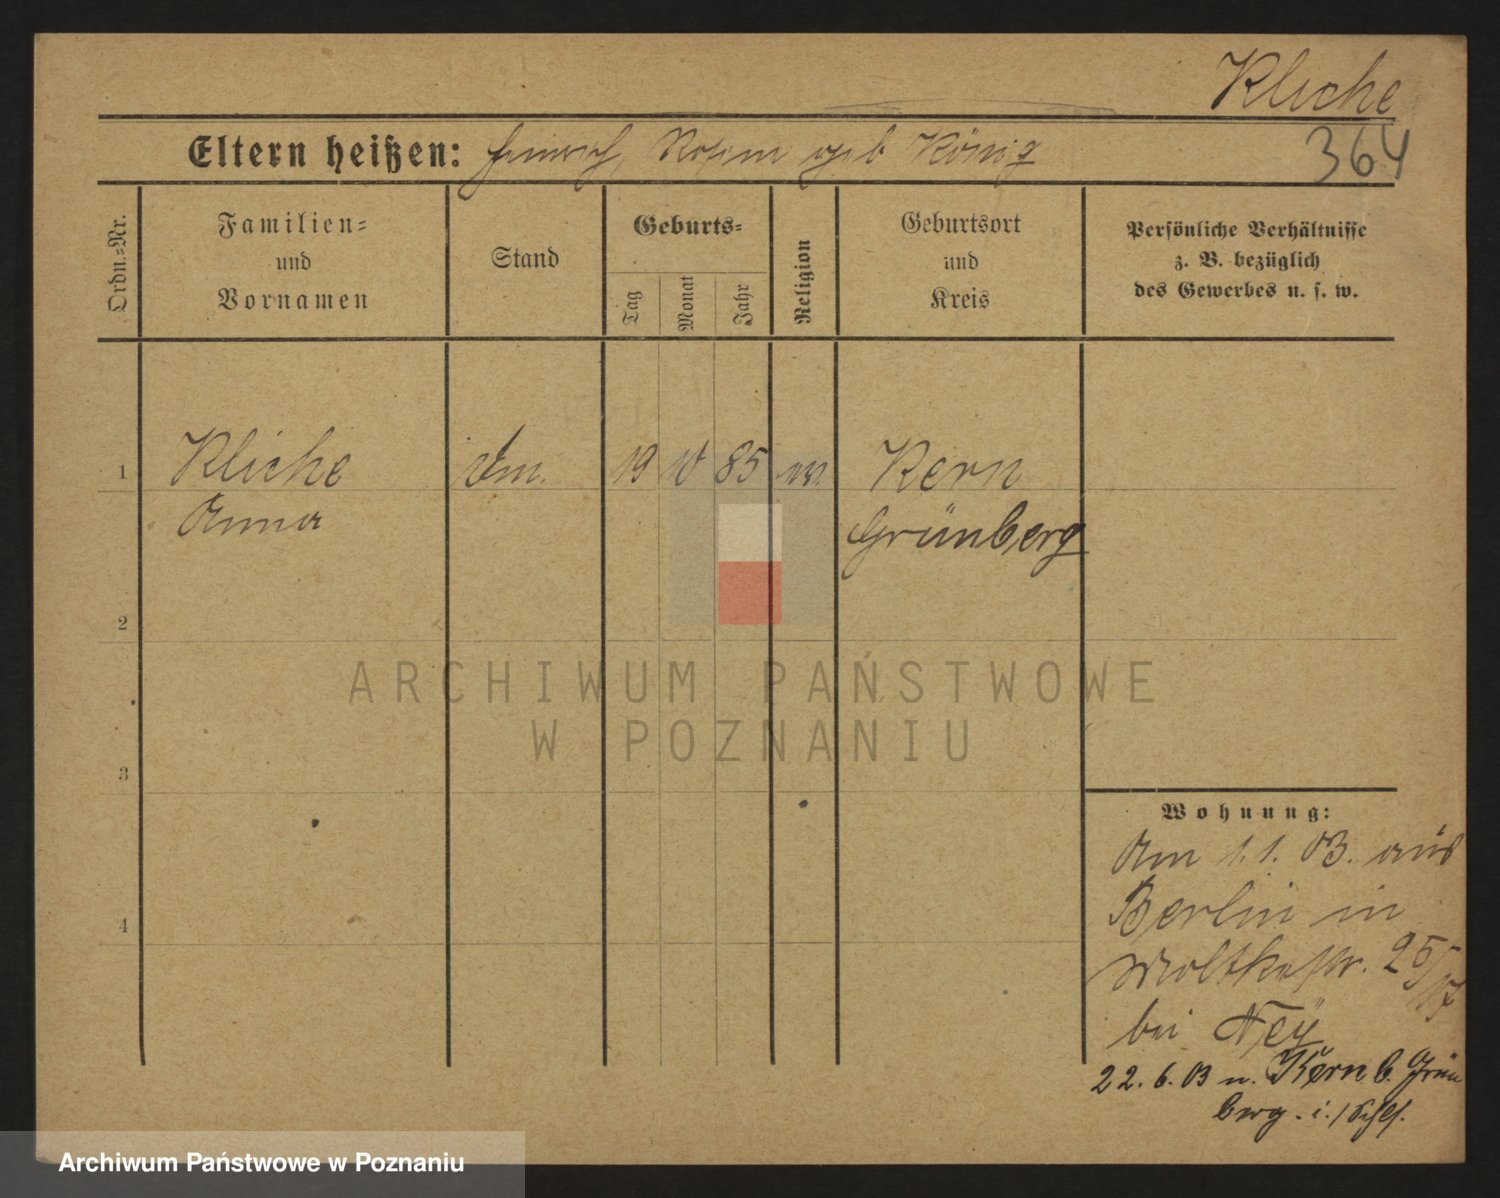 Kliche
364
Eltern heißen: Heinrich, Rosina geb König
Ordn.=Nr.
Familien=
und
Vornamen
Stand
Geburts=
Tag
Monat
Jahr
Religion
Geburtsort
und
Kreis
Persönliche Verhältnisse
z. B. bezüglich
des Gewerbes u. s. w.
1
Kliche
19 10 85
Kern
Anna
Grünberg
2
ARCHIWUM PAŃSTWOWE
W POZNANIU
3
Wohnung:
Am 1.1.03. aus
Berlin in
4
Moltkestr. 25/
bei Ney
22.6.03 n. Kern b. Grün
berg. i./Schles.
Archiwum Państwowe w Poznaniu